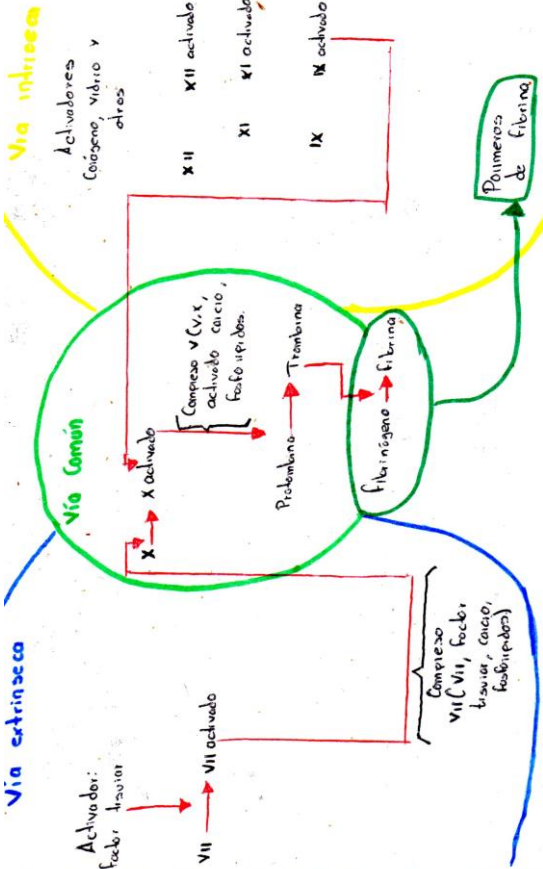 Vía extrínseca
Activador:
factor tisular
VII
VII activado
Complejo
VII (VII, factor
tisular, calcio,
fosfolípidos)
Vía Común
X
X activado
Complejo V (V, X,
activado calcio,
fosfolípidos.
Protombina
Trombina
fibrinógeno
fibrina
Polimeros
de fibrina
Vía intrínseca
Activadores
Colágeno, vidrio y
otros
XII
XII activado
XI
XI activado
IX
IX activado